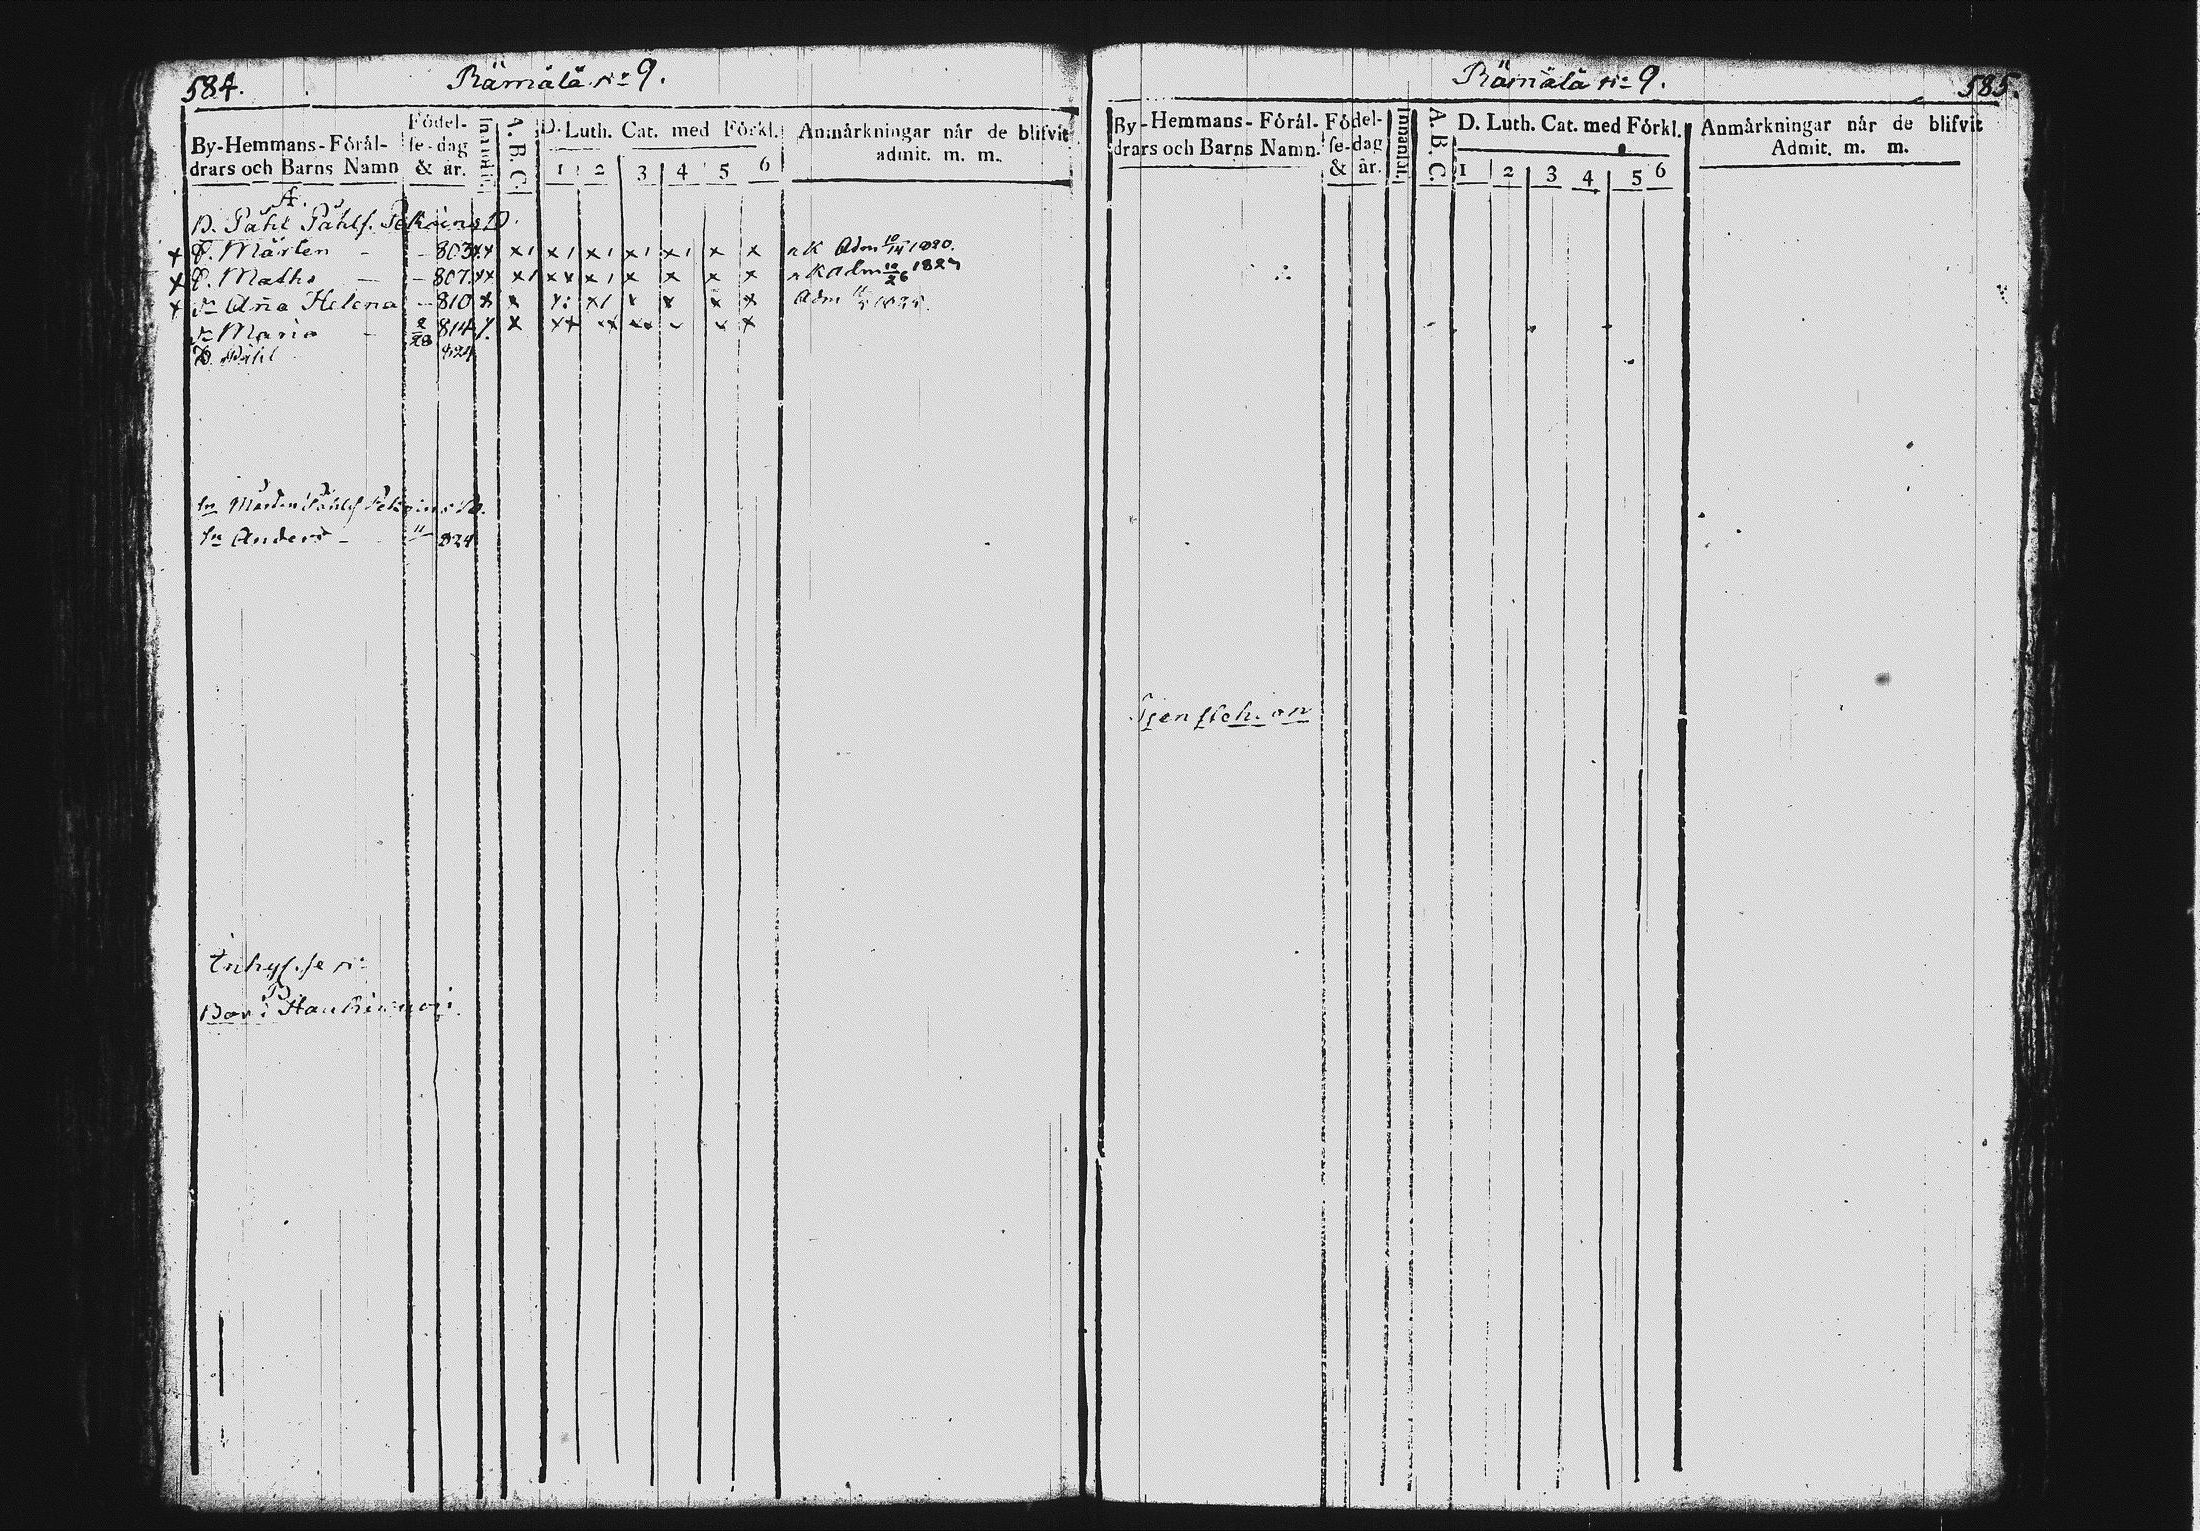 584.
Rämälä No 9.
By-Hemmans-Förål-
drars och Barns Namn
Födel-
se-dag
& år.
Innanläs.
A. B. C.
D. Luth. Cat. med Förkl.
1 2 3 4 5 6
Anmårkningar når de blifvit
admit. m. m.
A.
B. Påhl Påhls.
x D. Mårten - - 803 x x x 1 x 1 x 1 x 1 x 1 x x Adm 1820.
x D. Maths - - 807 x x x 1 x x x 1 x x x x Adm 10/26 182
x Dr Aña Helena - 810 x x x x 1 x x x x Adm
Dr Maria - 2/28 814 x x x x x x x
D. Påhl 824
sn Mårten Påhls
sn Anders - 11 824
Inhyses
B
Barn:
Rämälä No 9.
585.
By-Hemmans-Förål-
drars och Barns Namn.
Födel-
se-dag
& år.
Innanläs.
A. B. C.
D. Luth. Cat. med Förkl.
1 2 3 4 5 6
Anmårkningar når de blifvit
Admit. m. m.